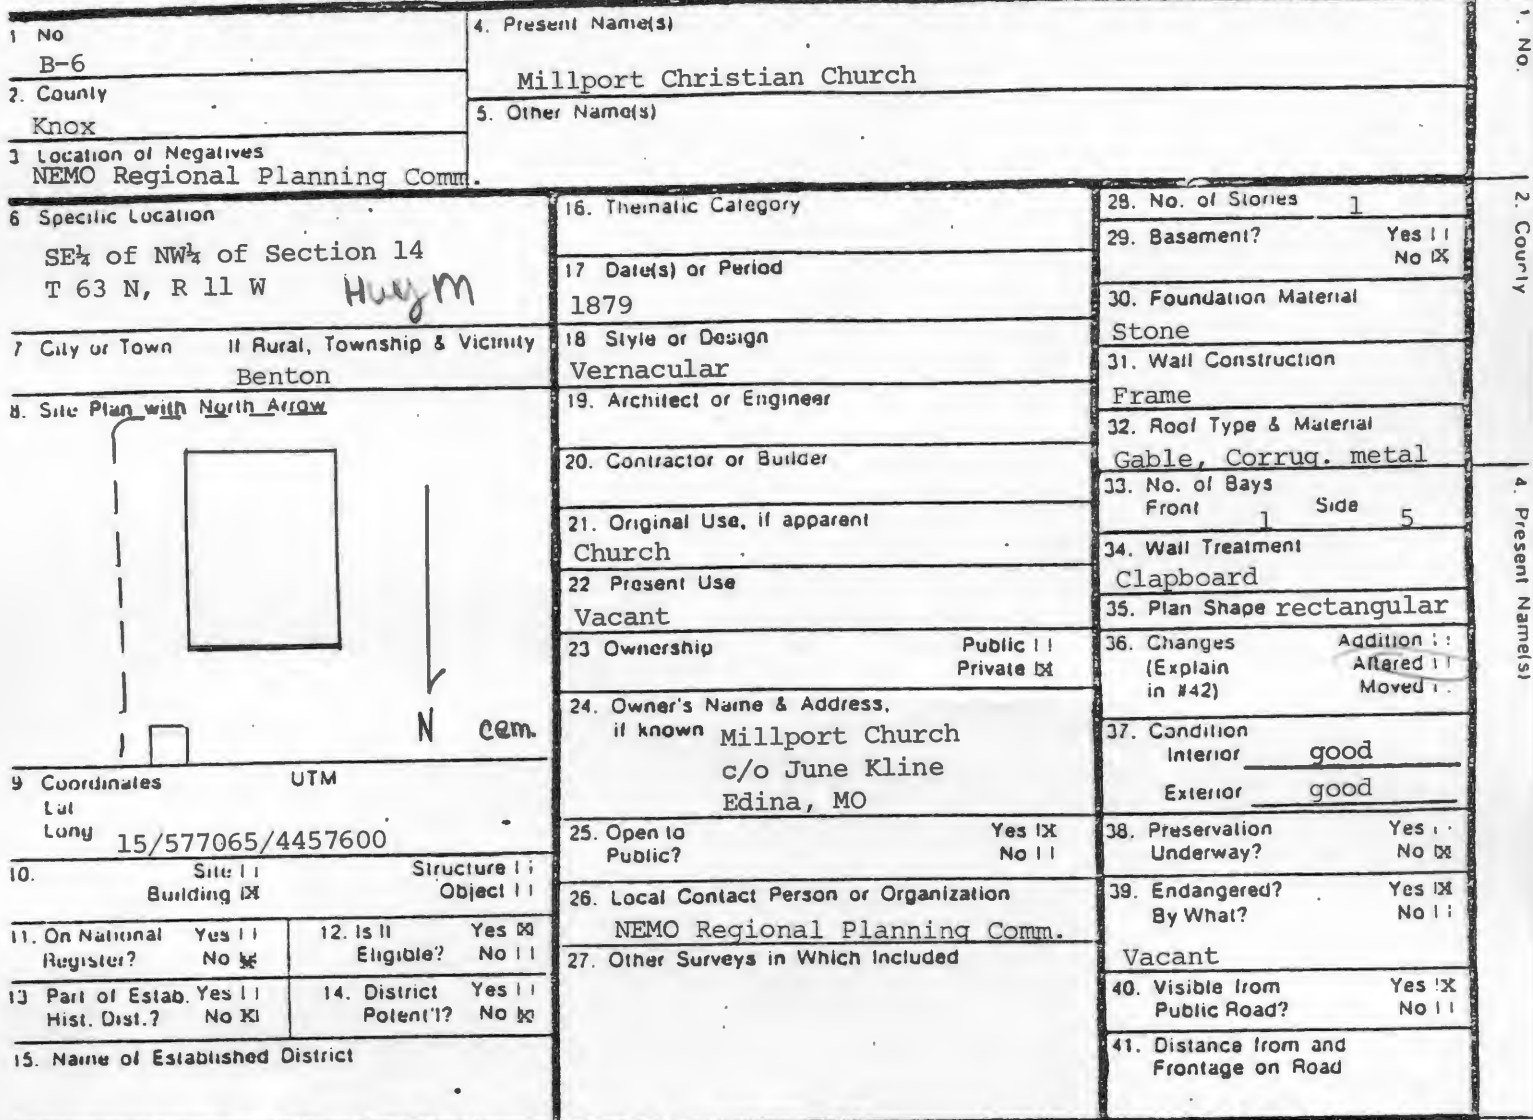 1 No
B-6
2. County
Knox
3 Location of Negatives
NEMO Regional Planning Comm.
4. Present Name(s)
Millport Christian Church
5. Other Name(s)
6 Specific Location
SE¼ of NW¼ of Section 14
T 63 N, R 11 W
7 City or Town If Rural, Township & Vicinity
Benton
8. Site Plan with North Arrow
N cem.
9 Coordinates UTM
Lat
Long 15/577065/4457600
10. Site Structure
Building X Object
11. On National Yes
Register? No X
12. Is It Yes X
Eligible? No
13 Part of Estab. Yes
Hist. Dist.? No X
14. District Yes
Potent'l? No X
15. Name of Established District
16. Thematic Category
17 Date(s) or Period
1879
18 Style or Design
Vernacular
19. Architect or Engineer
20. Contractor or Builder
21. Original Use, if apparent
Church
22 Present Use
Vacant
23 Ownership Public
Private X
24. Owner's Name & Address,
if known Millport Church
c/o June Kline
Edina, MO
25. Open to Yes X
Public? No
26. Local Contact Person or Organization
NEMO Regional Planning Comm.
27. Other Surveys in Which Included
28. No. of Stories 1
29. Basement? Yes
No X
30. Foundation Material
Stone
31. Wall Construction
Frame
32. Roof Type & Material
Gable, Corrug. metal
33. No. of Bays
Front 1 Side 5
34. Wall Treatment
Clapboard
35. Plan Shape rectangular
36. Changes Addition
(Explain Altered
in #42) Moved
37. Condition
Interior good
Exterior good
38. Preservation Yes
Underway? No X
39. Endangered? Yes X
By What? No
Vacant
40. Visible from Yes X
Public Road? No
41. Distance from and
Frontage on Road
1. No.
2. County
4. Present Name(s)